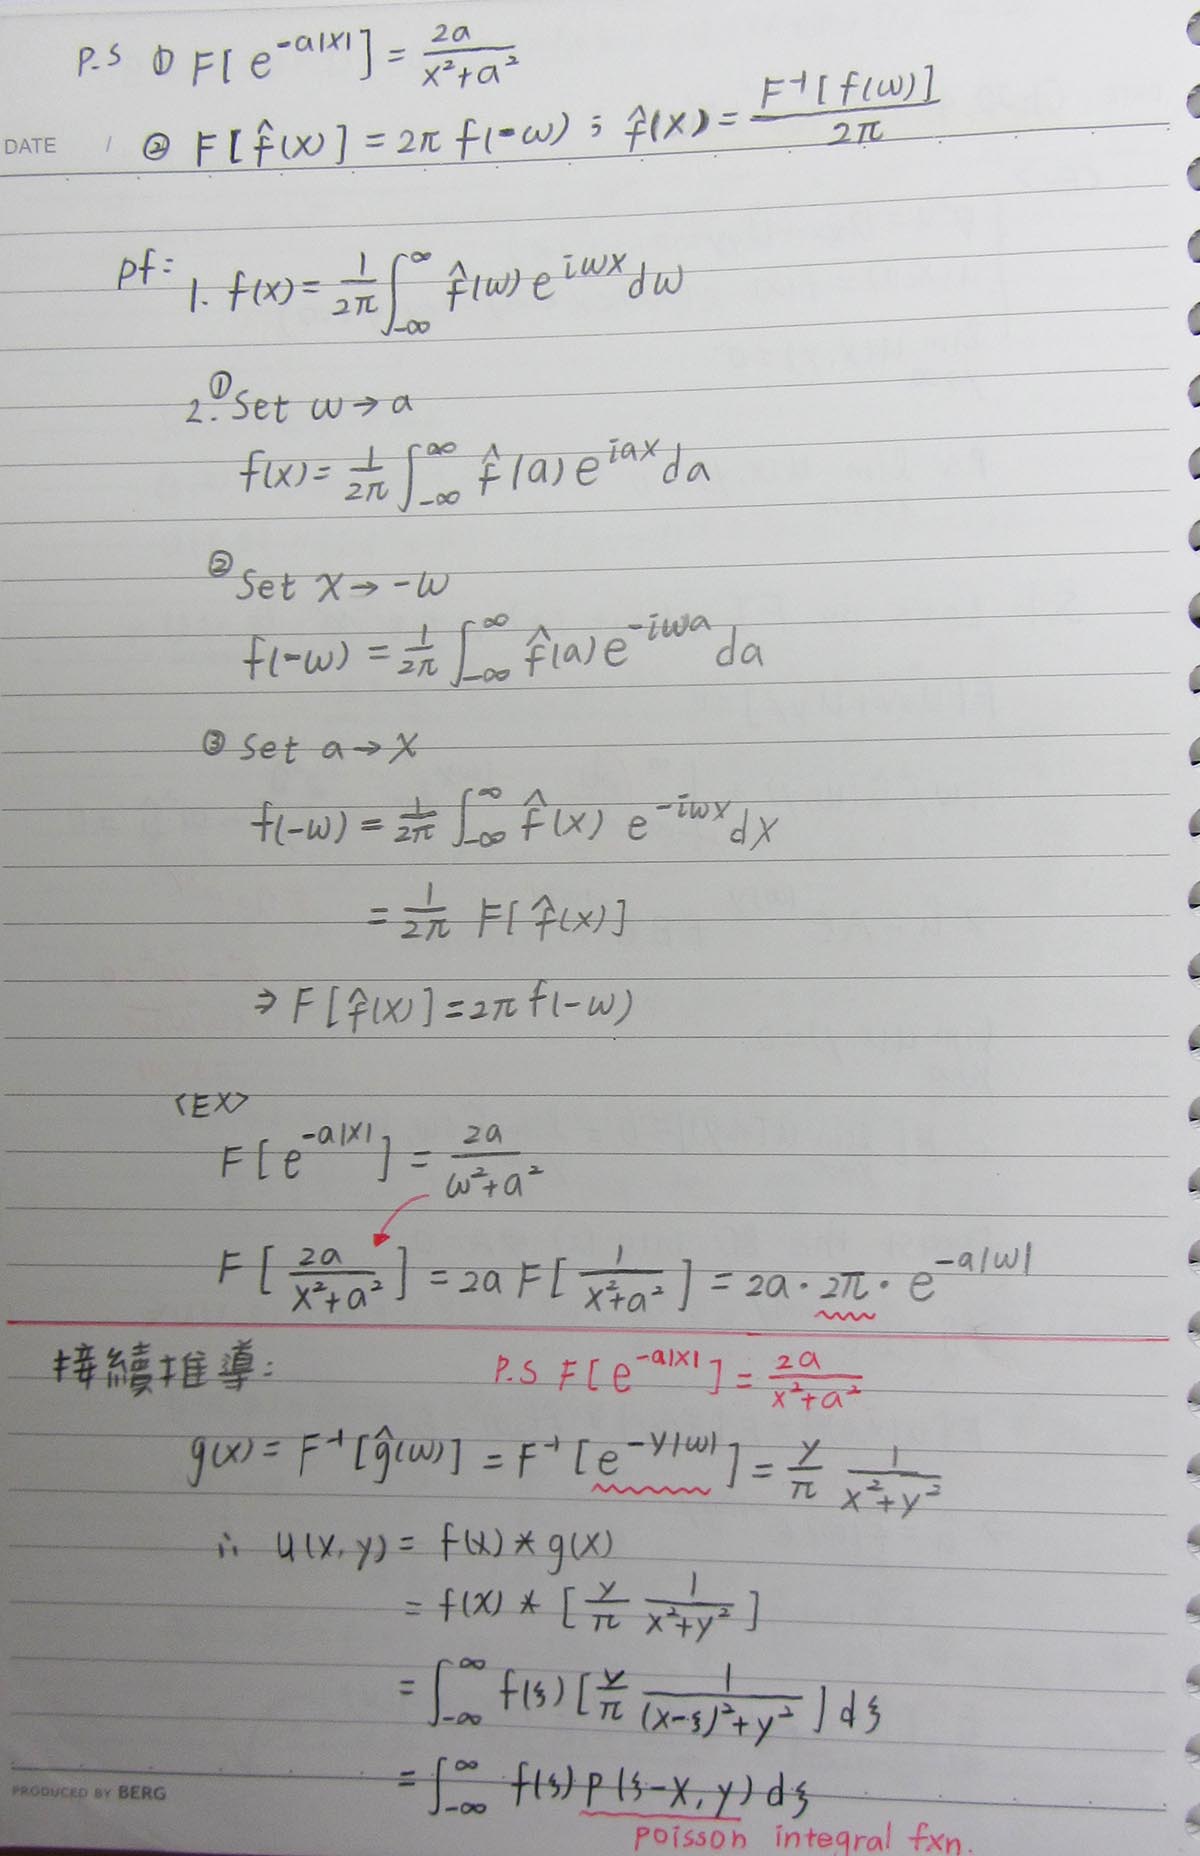 P.S ① F[e^{-a|x|}] = \frac{2a}{x²+a²}
DATE / ② F[f̂(x)] = 2π f(-ω) ; f̂(x) = \frac{F⁻¹[f(ω)]}{2π}
pf: 1. f(x) = \frac{1}{2π} ∫_{-∞}^{∞} f̂(ω) e^{iωx} dω
2. ① Set ω → a
f(x) = \frac{1}{2π} ∫_{-∞}^{∞} f̂(a) e^{iax} da
② Set x → -ω
f(-ω) = \frac{1}{2π} ∫_{-∞}^{∞} f̂(a) e^{-iωa} da
③ Set a → x
f(-ω) = \frac{1}{2π} ∫_{-∞}^{∞} f̂(x) e^{-iωx} dx
= \frac{1}{2π} F[f̂(x)]
⇒ F[f̂(x)] = 2π f(-ω)
<EX>
F[e^{-a|x|}] = \frac{2a}{ω²+a²}
F[\frac{2a}{x²+a²}] = 2a F[\frac{1}{x²+a²}] = 2a · 2π · e^{-a|ω|}
接續推導:
P.S F[e^{-a|x|}] = \frac{2a}{x²+a²}
g(x) = F⁻¹[ĝ(ω)] = F⁻¹[e^{-y|ω|}] = \frac{y}{π} \frac{1}{x²+y²}
∴ u(x,y) = f(x) * g(x)
= f(x) * [\frac{y}{π} \frac{1}{x²+y²}]
= ∫_{-∞}^{∞} f(ξ) [\frac{y}{π} \frac{1}{(x-ξ)²+y²}] dξ
= ∫_{-∞}^{∞} f(ξ) P(ξ-x, y) dξ
poisson integral fxn.
PRODUCED BY BERG